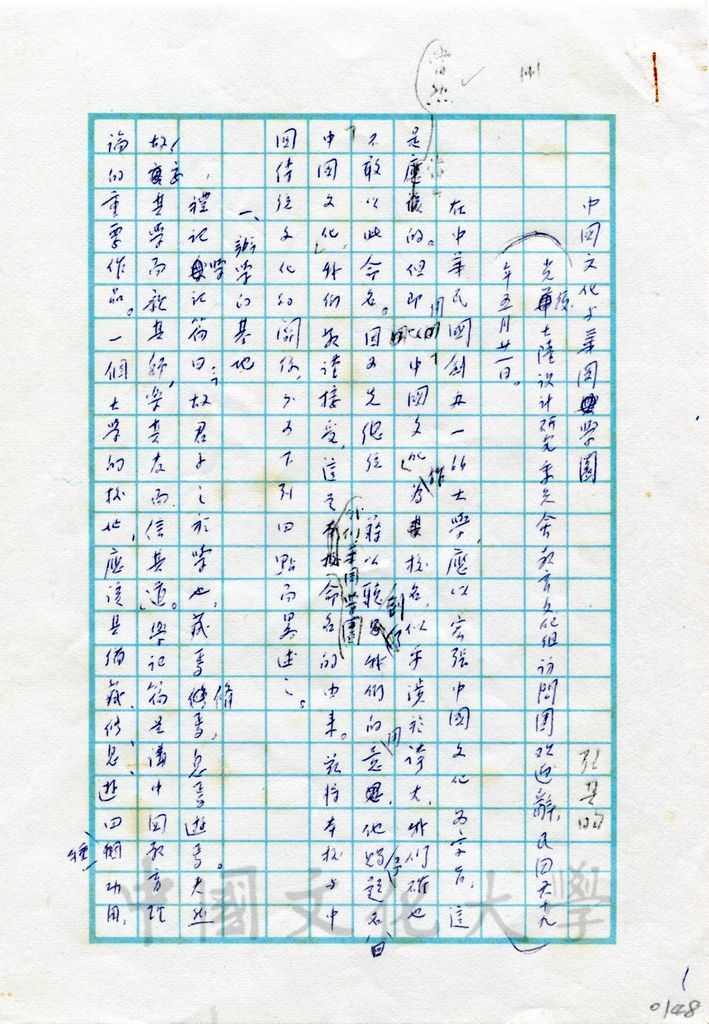 中國文化與華岡學園
張其昀
光復大陸設計研究委員會教育文化組訪問團歡迎辭,民國五十九
年五月廿一日。
在中華民國創立一所大學,應以宏張中國文化為宗旨,這
是應該的。但即用「中國文化」作為校名,似乎瀆於誇大,我們確也
不敢以此命名。因為先總統 蔣公聽到我們的意思,他賜題名曰
中國文化,我們敬謹接受,這是我們華岡學園命名的由來。茲將本校與中
國傳統文化的關係,分為下列四點而略述之。
一、辦學的基地
禮記學記篇曰:故君子之於學也,藏焉修焉,息焉遊焉。夫然
故,安其學而親其師,樂其友而信其道。學記篇是講中國教育理
論的重要作品。一個大學的校址,應該具備藏、修、息、遊四種功用,
中國文化大學
0148